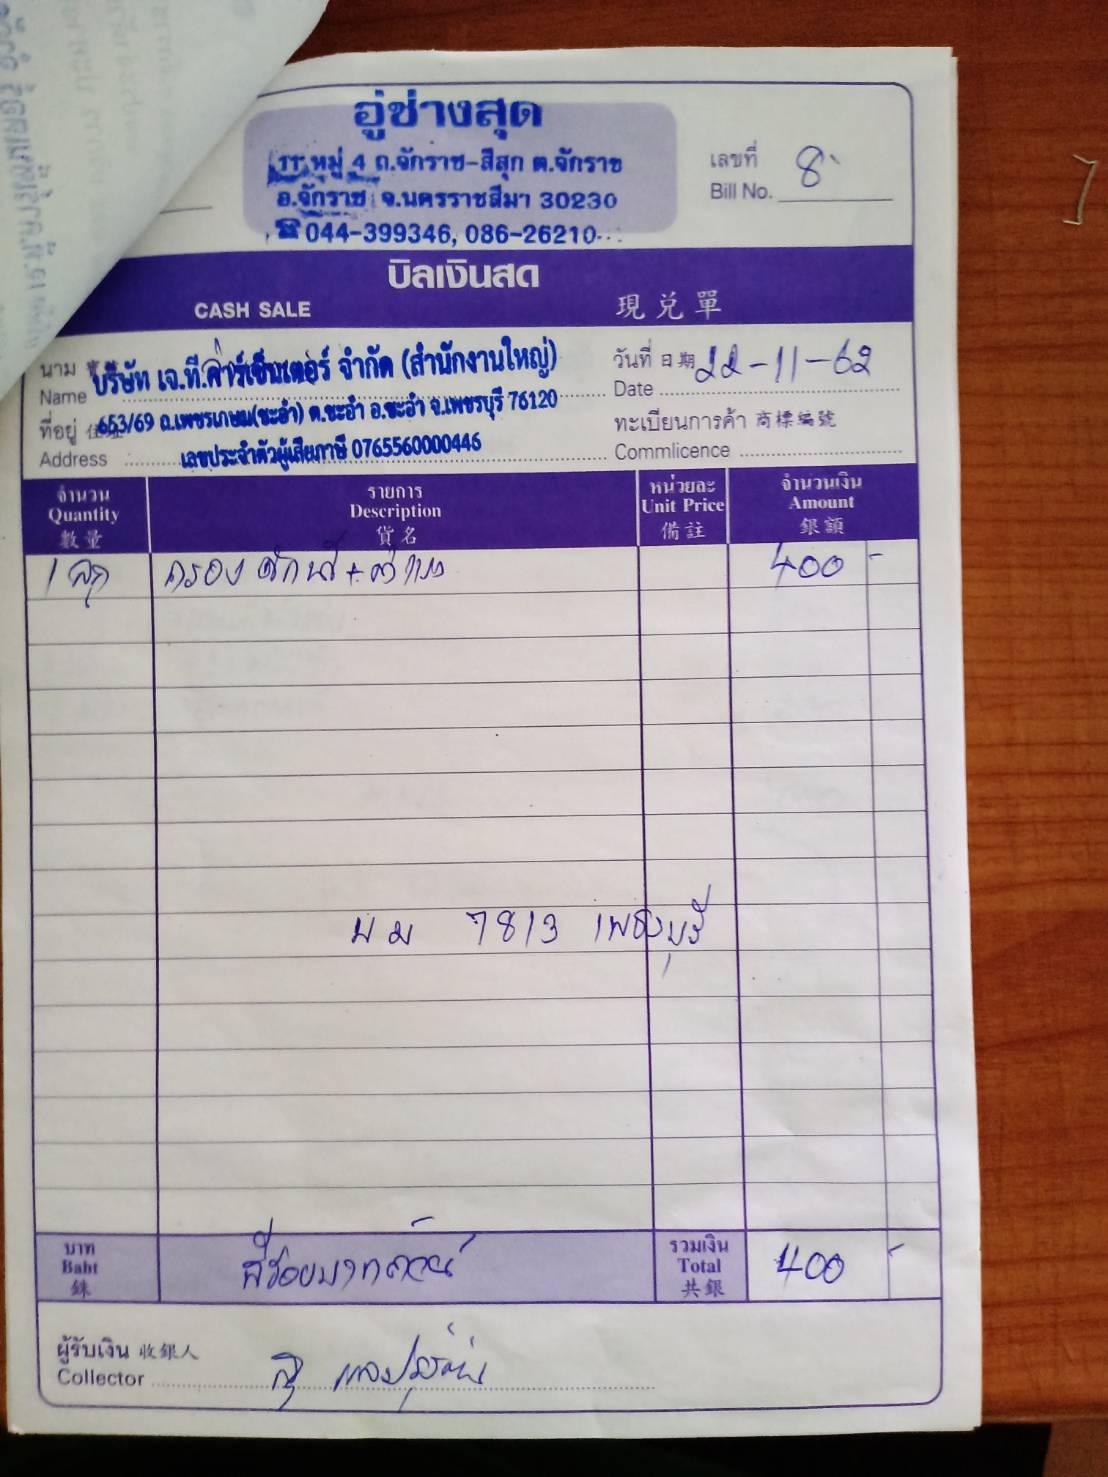 อู่ช่างสุด
หมู่ 4 ถ.จักราช-สีสุก ต.จักราช
อ.จักราช จ.นครราชสีมา 30230
☎044-399346, 086-26210
เลขที่ 8
Bill No.
บิลเงินสด
CASH SALE 現兑單
นาม บริษัท เจ.ที.คาร์เซ็นเตอร์ จำกัด (สำนักงานใหญ่)
Name
วันที่ 日期 22-11-62
Date
ที่อยู่ 653/69 ถ.เพชรเกษม(ชะอำ) ต.ชะอำ อ.ชะอำ จ.เพชรบุรี 76120
Address เลขประจำตัวผู้เสียภาษี 0765560000446
ทะเบียนการค้า 商標編號
Commlicence
จำนวน รายการ หน่วยละ จำนวนเงิน
Quantity Description Unit Price Amount
數量 貨名 備註 銀額
1 ลูก กรอง 400 -
7813 เพชรบุรี
บาท
Baht
銖
สี่ร้อยบาทถ้วน
รวมเงิน
Total
共銀
400 -
ผู้รับเงิน 收銀人
Collector